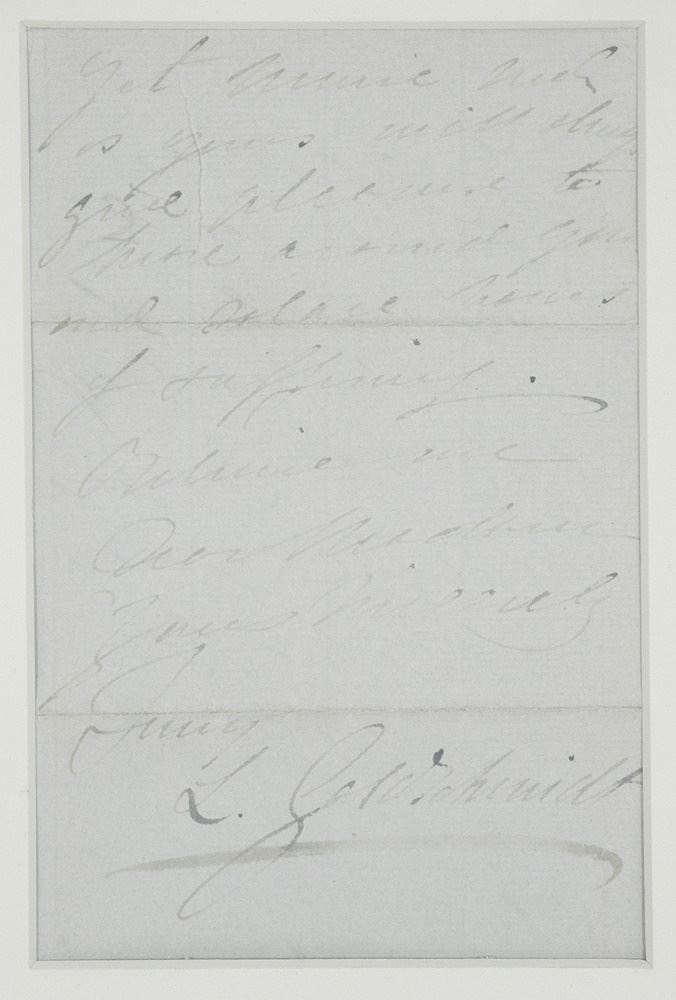 Yet music such
as yours will always
give pleasure to
those around you
and solace hours
of suffering.
Believe me
Dear Madam
Yours sincerely
Jenny
L. Goldschmidt